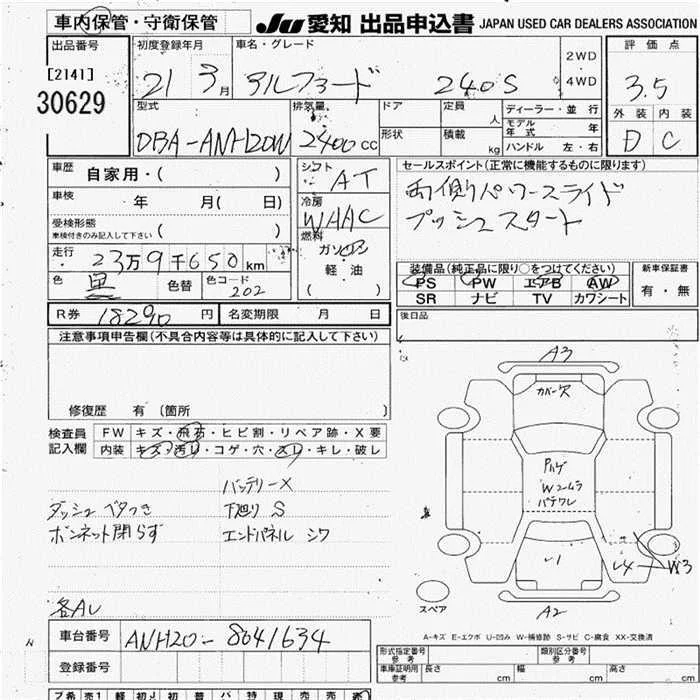 車内保管・守衛保管
JU 愛知 出品申込書 JAPAN USED CAR DEALERS ASSOCIATION
出品番号
[2141]
30629
初度登録年月
21 3月
車名・グレード
アルファード 240S
2WD
4WD
評価点
3.5
外装 内装
D C
型式
DBA-ANH20W
排気量
2400 CC
ドア
形状
定員
人
積載
kg
ディーラー・並行
モデル年式 年
ハンドル 左・右
車歴 自家用・( )
車検 年 月( 日)
受検形態
車検付きのみ記入して下さい ( )
走行 23万9千650km
色 黒 色替 色コード 202
シフト AT
冷房 WAAC
燃料 ガソリン
軽・油
( )
セールスポイント(正常に機能するものに限ります)
両側パワースライド
プッシュスタート
装備品(純正品に限り○をつけてください)
PS PW エアB AW
SR ナビ TV カワシート
新車保証書
有・無
R券 18290円 名変期限 月 日
後日品
注意事項申告欄(不具合内容等は具体的に記入して下さい)
修復歴 有 (箇所 )
検査員記入欄
FW キズ・飛石・ヒビ割・リペア跡・X要
内装 キズ・汚レ・コゲ・穴・スレ・キレ・破レ
バッテリーX
ダッシュ ベタつき 下廻り S
ボンネット閉らず エンドパネル シワ
各AU
A3
カバー欠
Pハゲ
Wコームラ
パテワレ
U1
U4
W3
A2
スペア
A-キズ E-エクボ U-凹み W-補修跡 S-サビ C-腐食 XX-交換済
車台番号 ANH20-8041634
登録番号
形式指定番号 参考
類別区分番号 参考
車庫証明用 参考 長さ cm 幅 cm 高さ cm